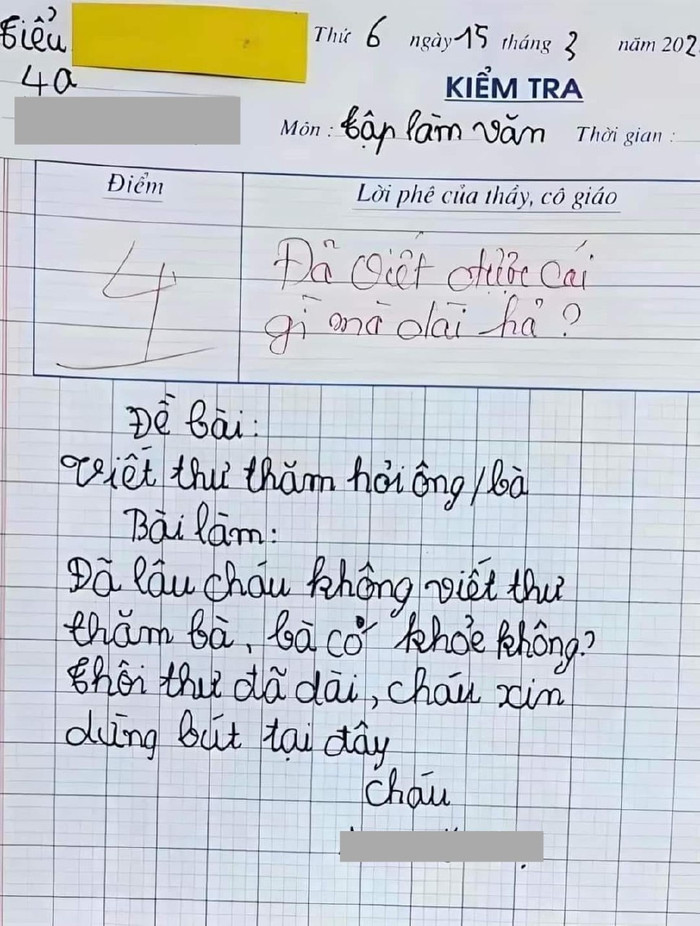 Tiểu
Thứ 6 ngày 15 tháng 3 năm 202
4a
KIỂM TRA
Môn : tập làm văn Thời gian :
Điểm
Lời phê của thầy, cô giáo
4
Đã viết được cái
gì mà dài hả ?
Đề bài:
Viết thư thăm hỏi ông/bà
Bài làm:
Đã lâu cháu không viết thư
thăm bà, bà có khỏe không?
thôi thư đã dài, cháu xin
dừng bút tại đây
cháu